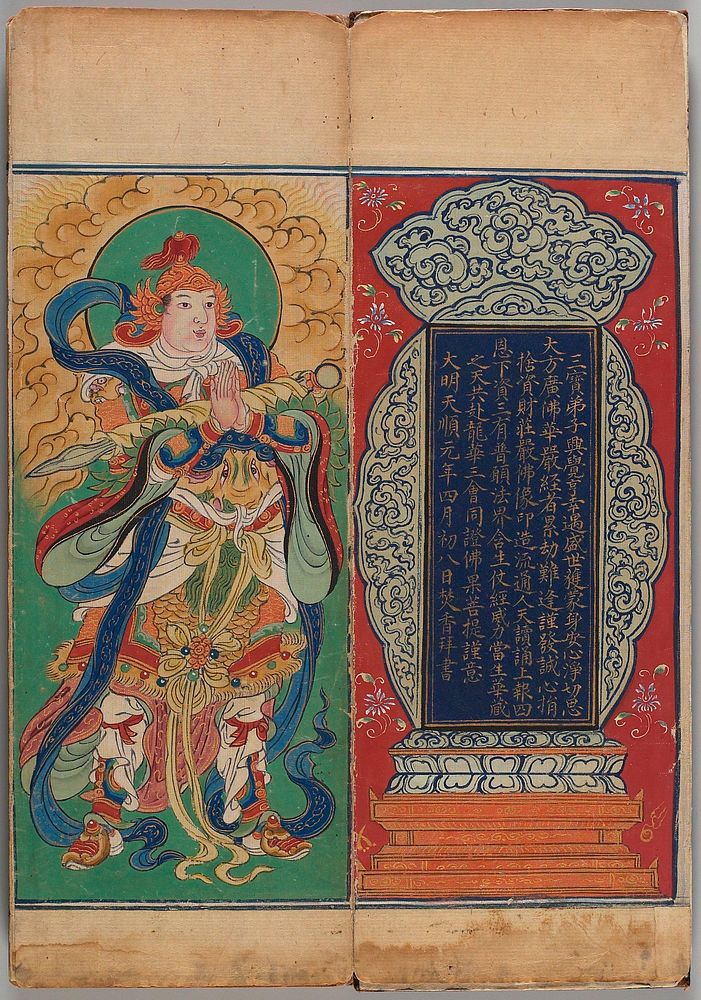 三寶弟子興覺幸遇盛世獲蒙身安心淨切思
大方廣佛華嚴經者累劫難逢謹發誠心捐
捨資財莊嚴佛像印造流通人天讀誦上報四
恩下資三有普願法界含生仗經威力當生華藏
之天共赴龍華三會同證佛果菩提謹意
大明天順元年四月初八日焚香拜書